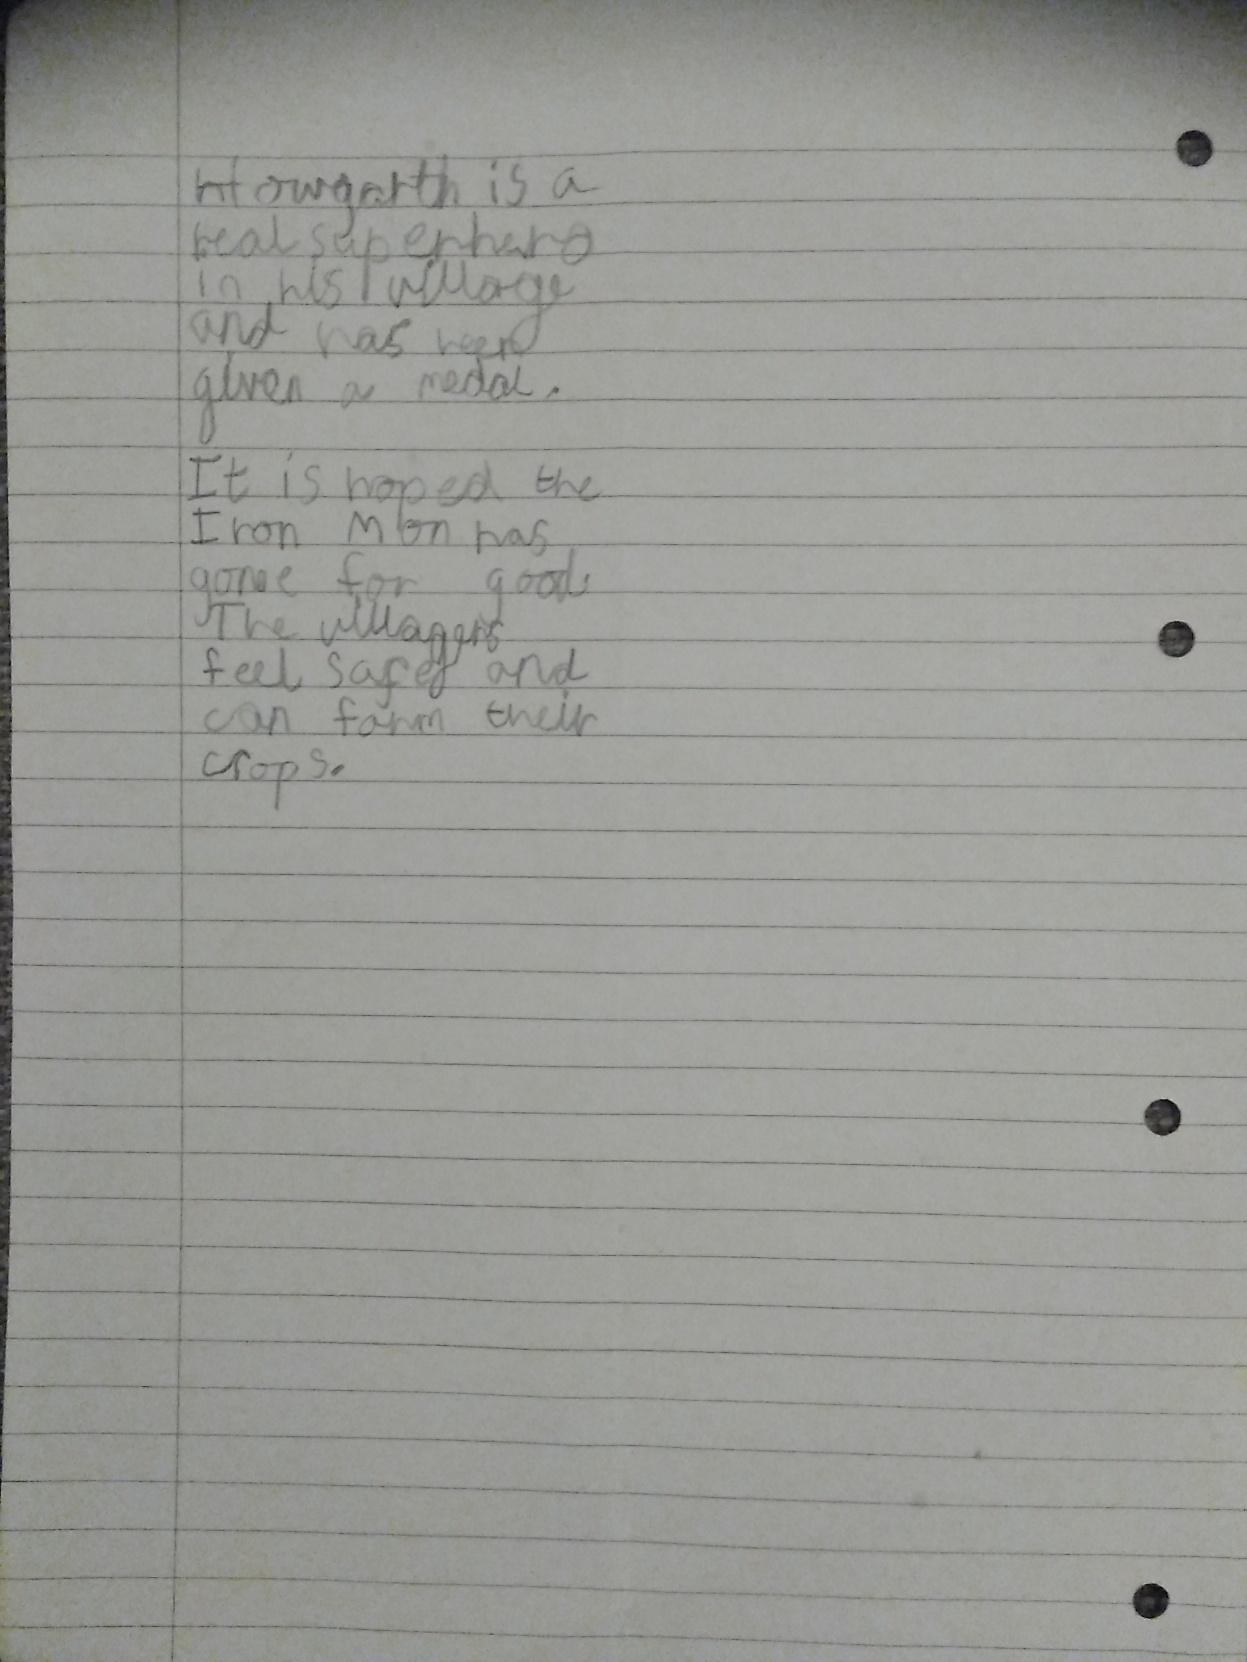 Howgarth is a
real superhero
in his village
and has been
given a medal.
It is hoped the
Iron Man has
gone for good.
The villagers
feel safer and
can farm their
crops.